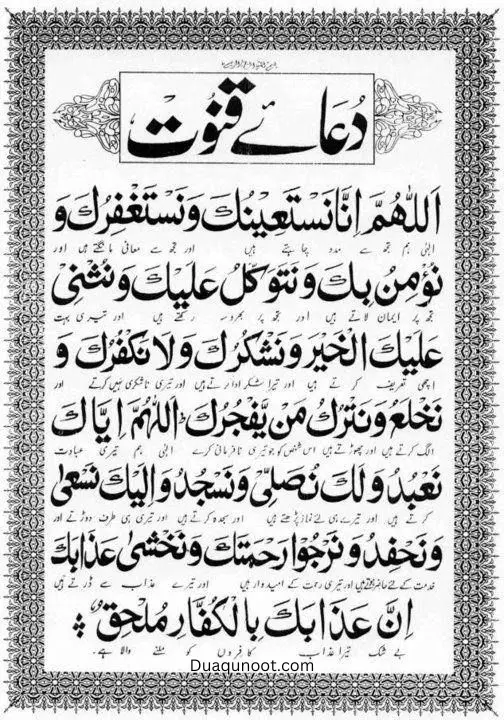 دُعَائے قنُوت
اَللّٰهُمَّ اِنَّا نَسْتَعِيْنُكَ وَنَسْتَغْفِرُكَ وَ
الٰہی ہم تجھ سے مدد چاہتے ہیں اور تجھ سے معافی مانگتے ہیں اور
نُؤْمِنُ بِكَ وَنَتَوَكَّلُ عَلَيْكَ وَنُثْنِيْ
تجھ پر ایمان لاتے ہیں اور تجھ پر بھروسہ رکھتے ہیں اور تیری بہت
عَلَيْكَ الْخَيْرَ وَنَشْكُرُكَ وَلَا نَكْفُرُكَ وَ
اچھی تعریف کرتے ہیں اور تیرا شکر ادا کرتے ہیں اور تیری ناشکری نہیں کرتے اور
نَخْلَعُ وَنَتْرُكُ مَنْ يَّفْجُرُكَ اَللّٰهُمَّ اِيَّاكَ
الگ کرتے ہیں اور چھوڑتے ہیں اس شخص کو جو تیری نافرمانی کرے الٰہی ہم تیری عبادت
نَعْبُدُ وَلَكَ نُصَلِّيْ وَنَسْجُدُ وَاِلَيْكَ نَسْعٰى
کرتے ہیں اور تیرے ہی لئے نماز پڑھتے ہیں اور سجدہ کرتے ہیں اور تیری ہی طرف دوڑتے اور
وَنَحْفِدُ وَنَرْجُوْا رَحْمَتَكَ وَنَخْشٰى عَذَابَكَ
خدمت کے لئے حاضر ہوتے ہیں اور تیری رحمت کے امیدوار ہیں اور تیرے عذاب سے ڈرتے ہیں
اِنَّ عَذَابَكَ بِالْكُفَّارِ مُلْحِقٌ
بے شک تیرا عذاب کافروں کو ملنے والا ہے۔
Duaqunoot.com